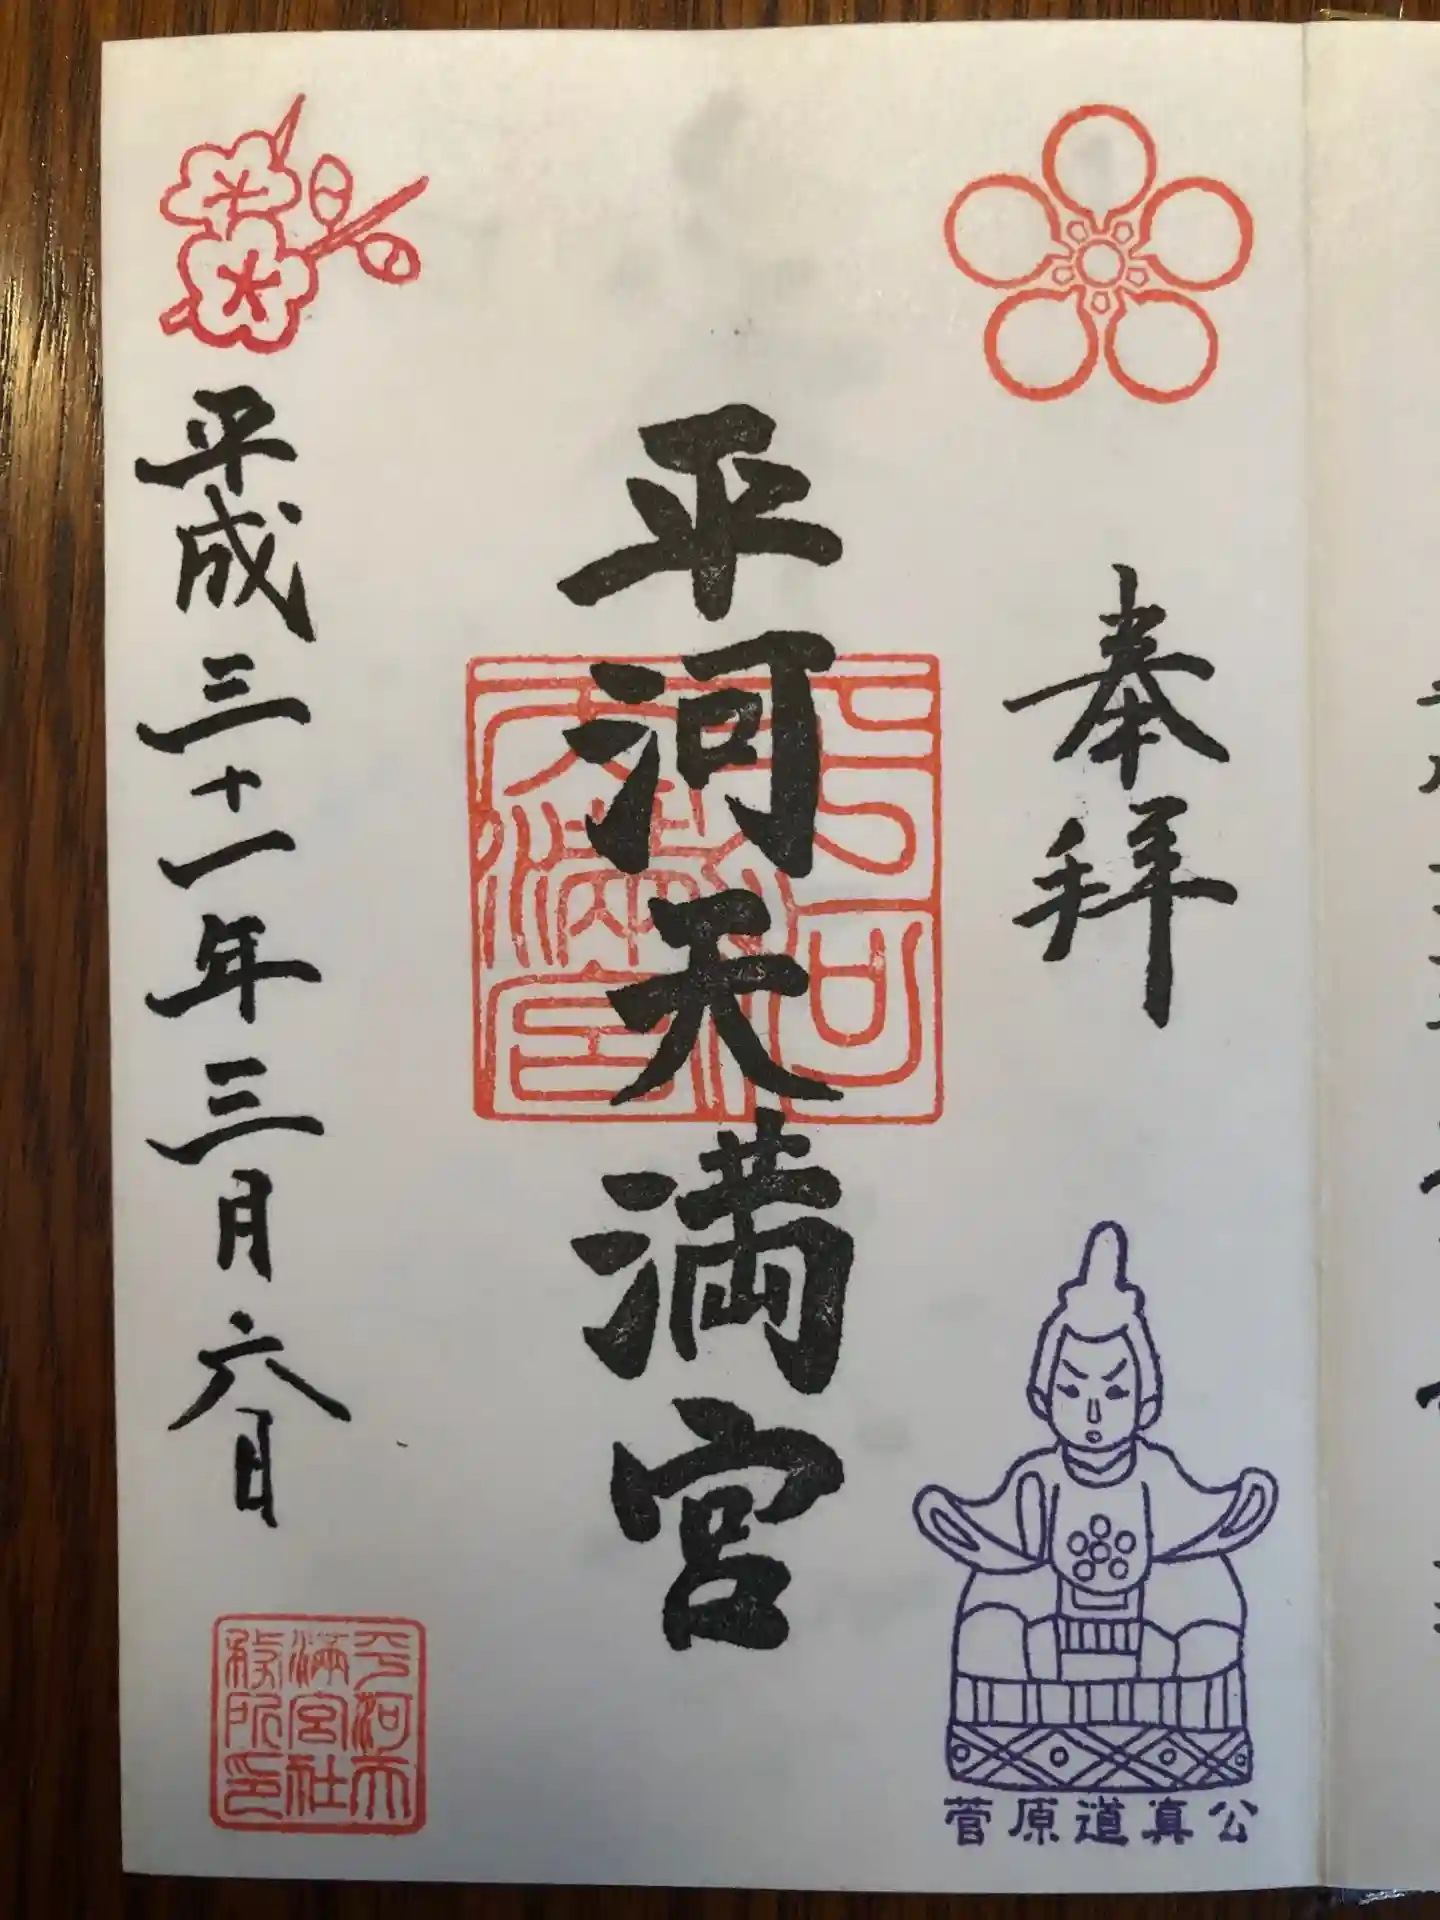 奉拝
平河天満宮
平成三十一年三月六日
菅原道真公
平河天
満宮社
務所印
平河
天満宮